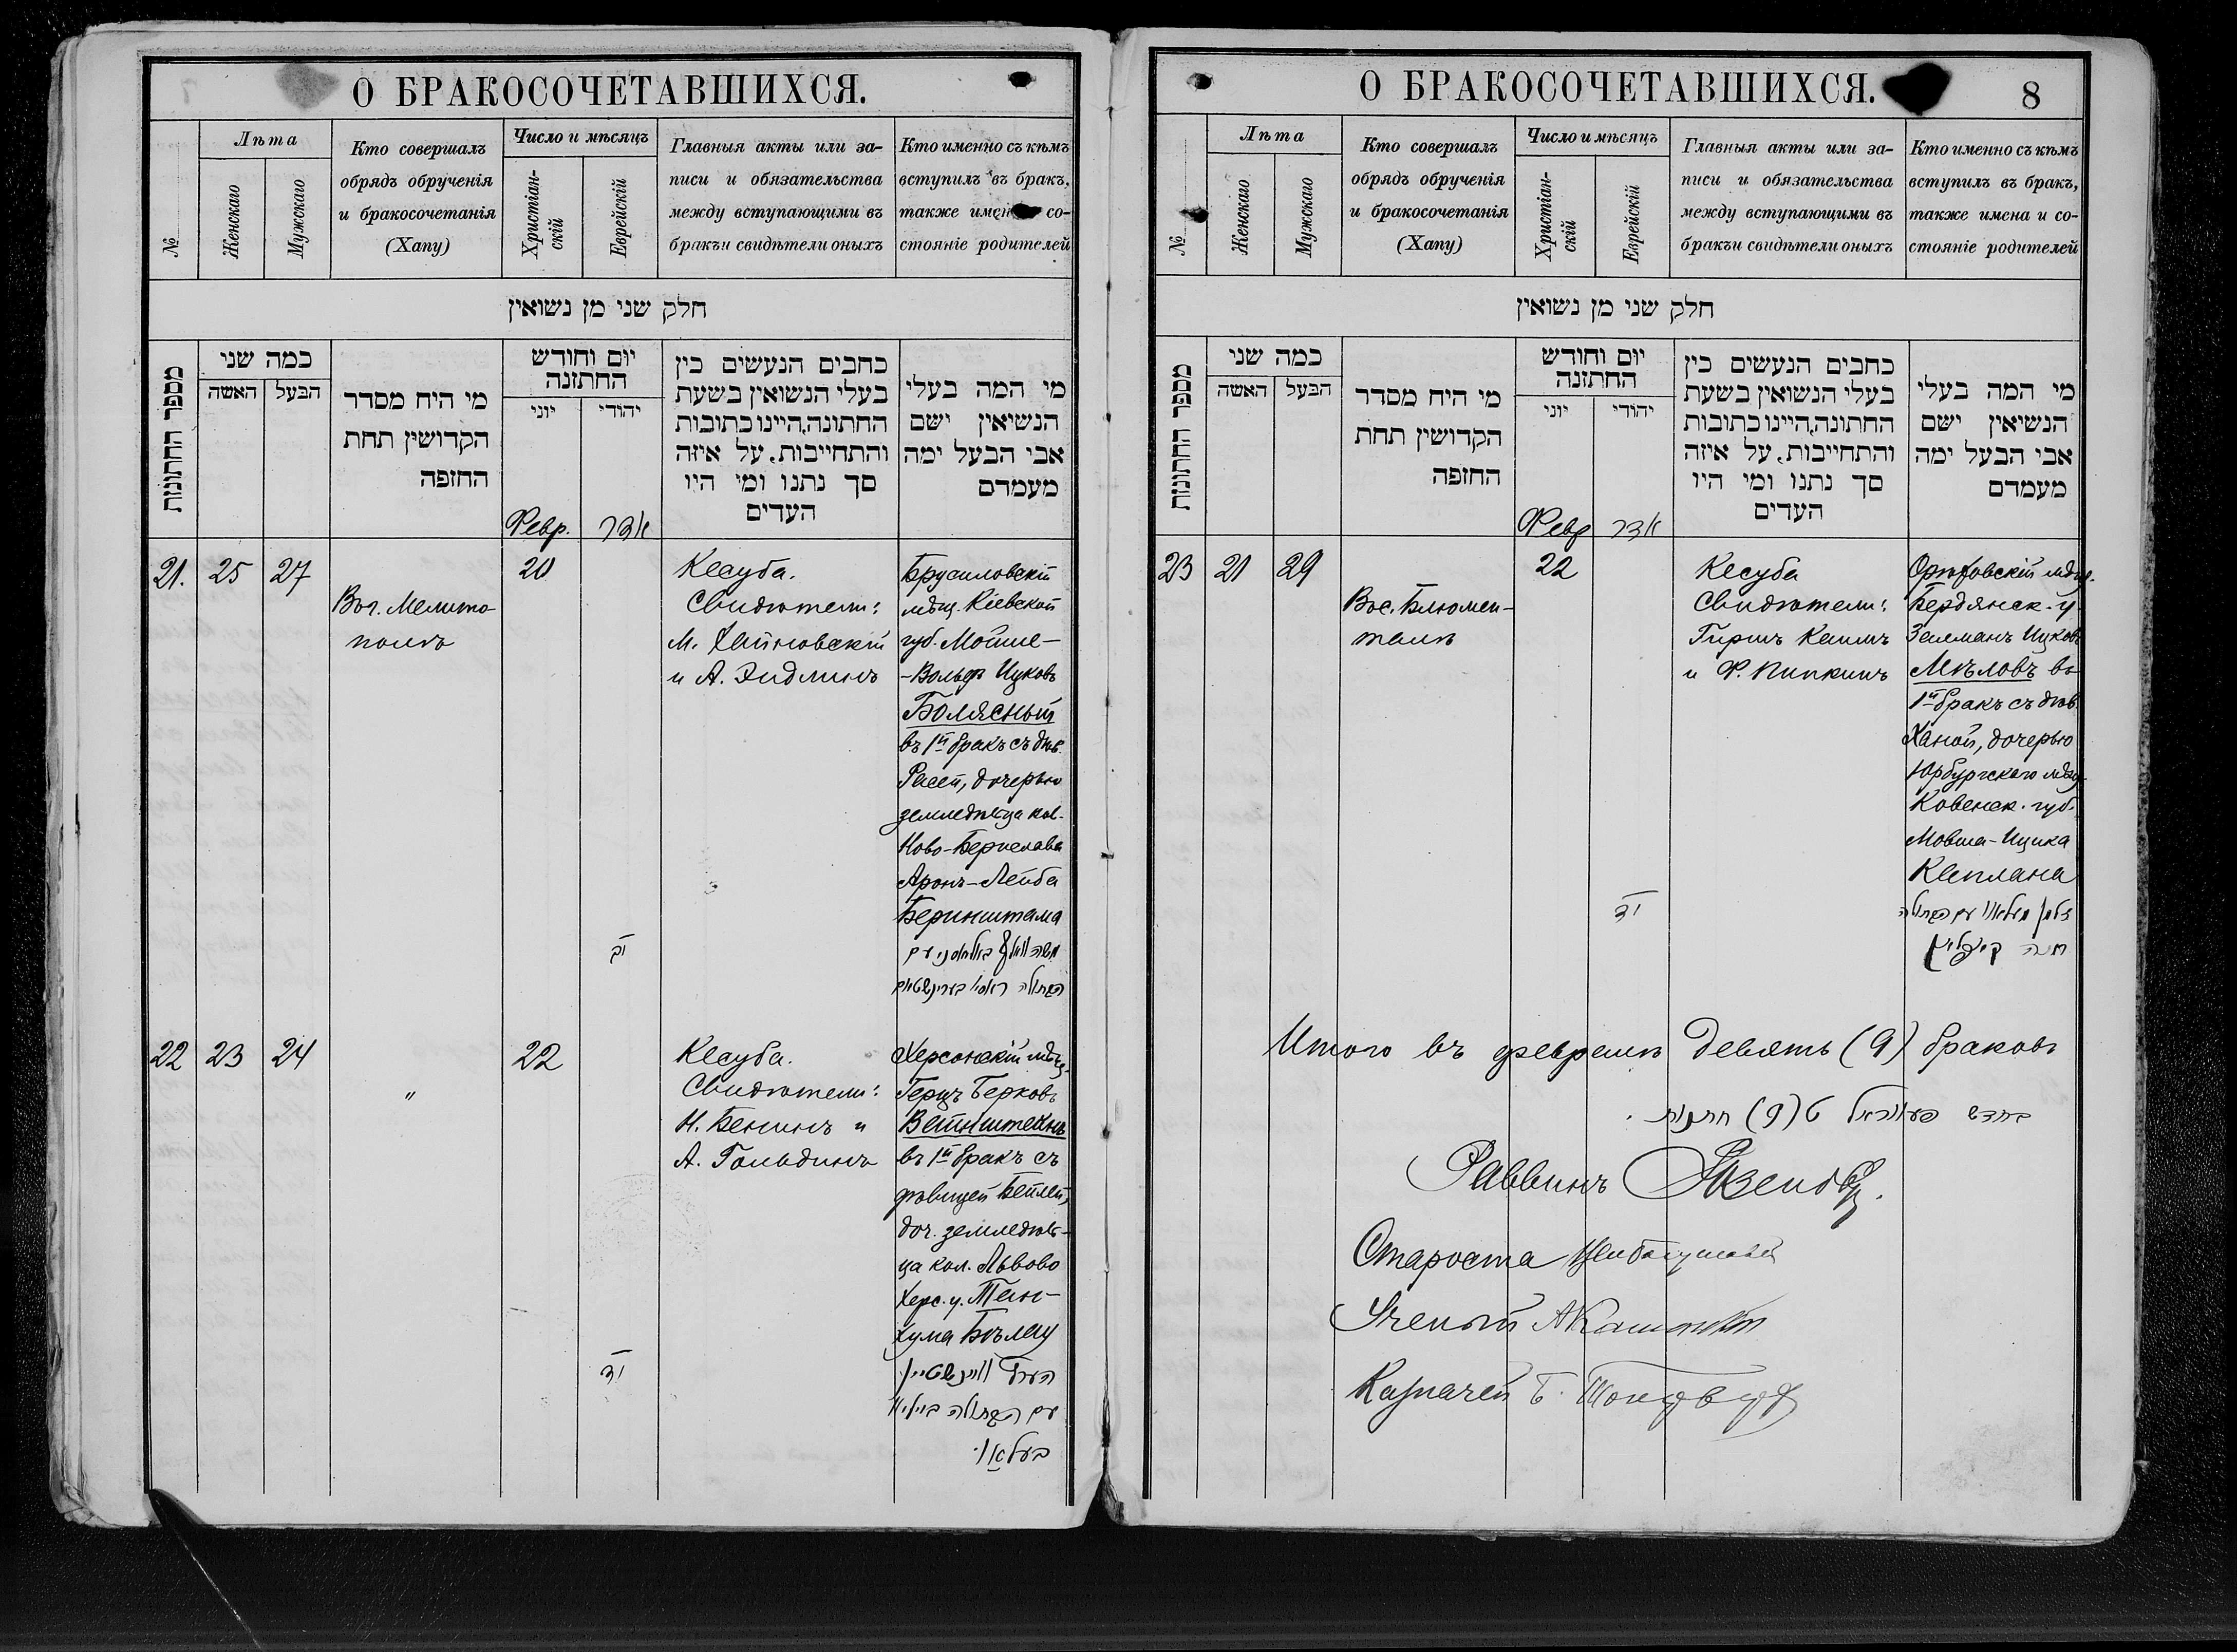 О БРАКОСОЧЕТАВШИХСЯ.
№
Лѣта
Женскаго
Мужскаго
Кто совершалъ
обрядъ обрученія
и бракосочетанія
(Хапу)
Число и мѣсяцъ
Христіан-
скій
Еврейскій
Главныя акты или за-
писи и обязательства
между вступающими въ
бракъ и свидѣтели оныхъ
Кто именно съ кѣмъ
вступилъ въ бракъ,
также имена со-
стояніе родителей
חלק שני מן נשואין
מספר החתונות
כמה שני
האשה
הבעל
מי היח מסדר
הקדושין תחת
החופה
יום וחודש
החתונה
יוני
יהודי
כחבים הנעשים כין
בעלי הנשואין בשעת
החתונה,היינו כתובות
והתחייבות, על איזה
סך נתנו ומי היו
העדים
מי המה בעלי
הנשיאין ישם
אבי הבעל ימה
מעמדם
Февр.
אדר
21.
25
27
Вог. Мелито-
поль
20
יב
Кесуба.
Свидѣтели:
М. Хайновскій
и А. Эидлинъ
Брусиловскій
мѣщ. Кіевской
губ. Мойше-
-Вольфъ Ицковъ
Болясный
въ 1й бракъ съ дѣв.
Расей, дочерью
земледѣльца кол.
Ново-Бериславъ
Аронъ-Лейба
Беринштама
22
23
24
"
22
יד
Кесуба.
Свидѣтели:
Н. Бенинъ и
А. Гольдинъ
Херсонскій мѣщ.
Герцъ Берковъ
Вейнштейнъ
въ 1й бракъ съ
дѣвицей Бейлей,
доч. земледѣль-
ца кол. Львово
Херс. у. Тан-
хума
הערץ וויינשטיין
עם הבתולה ביילא
О БРАКОСОЧЕТАВШИХСЯ.
8
№
Лѣта
Женскаго
Мужскаго
Кто совершалъ
обрядъ обрученія
и бракосочетанія
(Хапу)
Число и мѣсяцъ
Христіан-
скій
Еврейскій
Главныя акты или за-
писи и обязательства
между вступающими въ
бракъ и свидѣтели оныхъ
Кто именно съ кѣмъ
вступилъ въ бракъ,
также имена и со-
стояніе родителей
חלק שני מן נשואין
מספר החתונות
כמה שני
האשה
הבעל
מי היח מסדר
הקדושין תחת
החופה
יום וחודש
החתונה
יוני
יהודי
כחבים הנעשים כין
בעלי הנשואין בשעת
החתונה,היינו כתובות
והתחייבות, על איזה
סך נתנו ומי היו
העדים
מי המה בעלי
הנשיאין ישם
אבי הבעל ימה
מעמדם
Февр
אדר
23
21
29
Вос. Блюмен-
таль
22
יד
Кесуба
Свидѣтели:
Гиршъ Капшъ
и Ф. Пипкинъ
Орѣховскій мѣщ.
Бердянск. у.
Залманъ Ицковъ
Мѣловъ въ
1й бракъ съ дѣв.
Ханой, дочерью
Юрбургскаго мѣщ.
Ковенск. губ.
Мовша-Ицика
Каплана
Итого въ февралѣ девять (9) браковъ
בחדש פעווראל ט (9) חתנות
Раввинъ
Староста
Ученый
Казначей